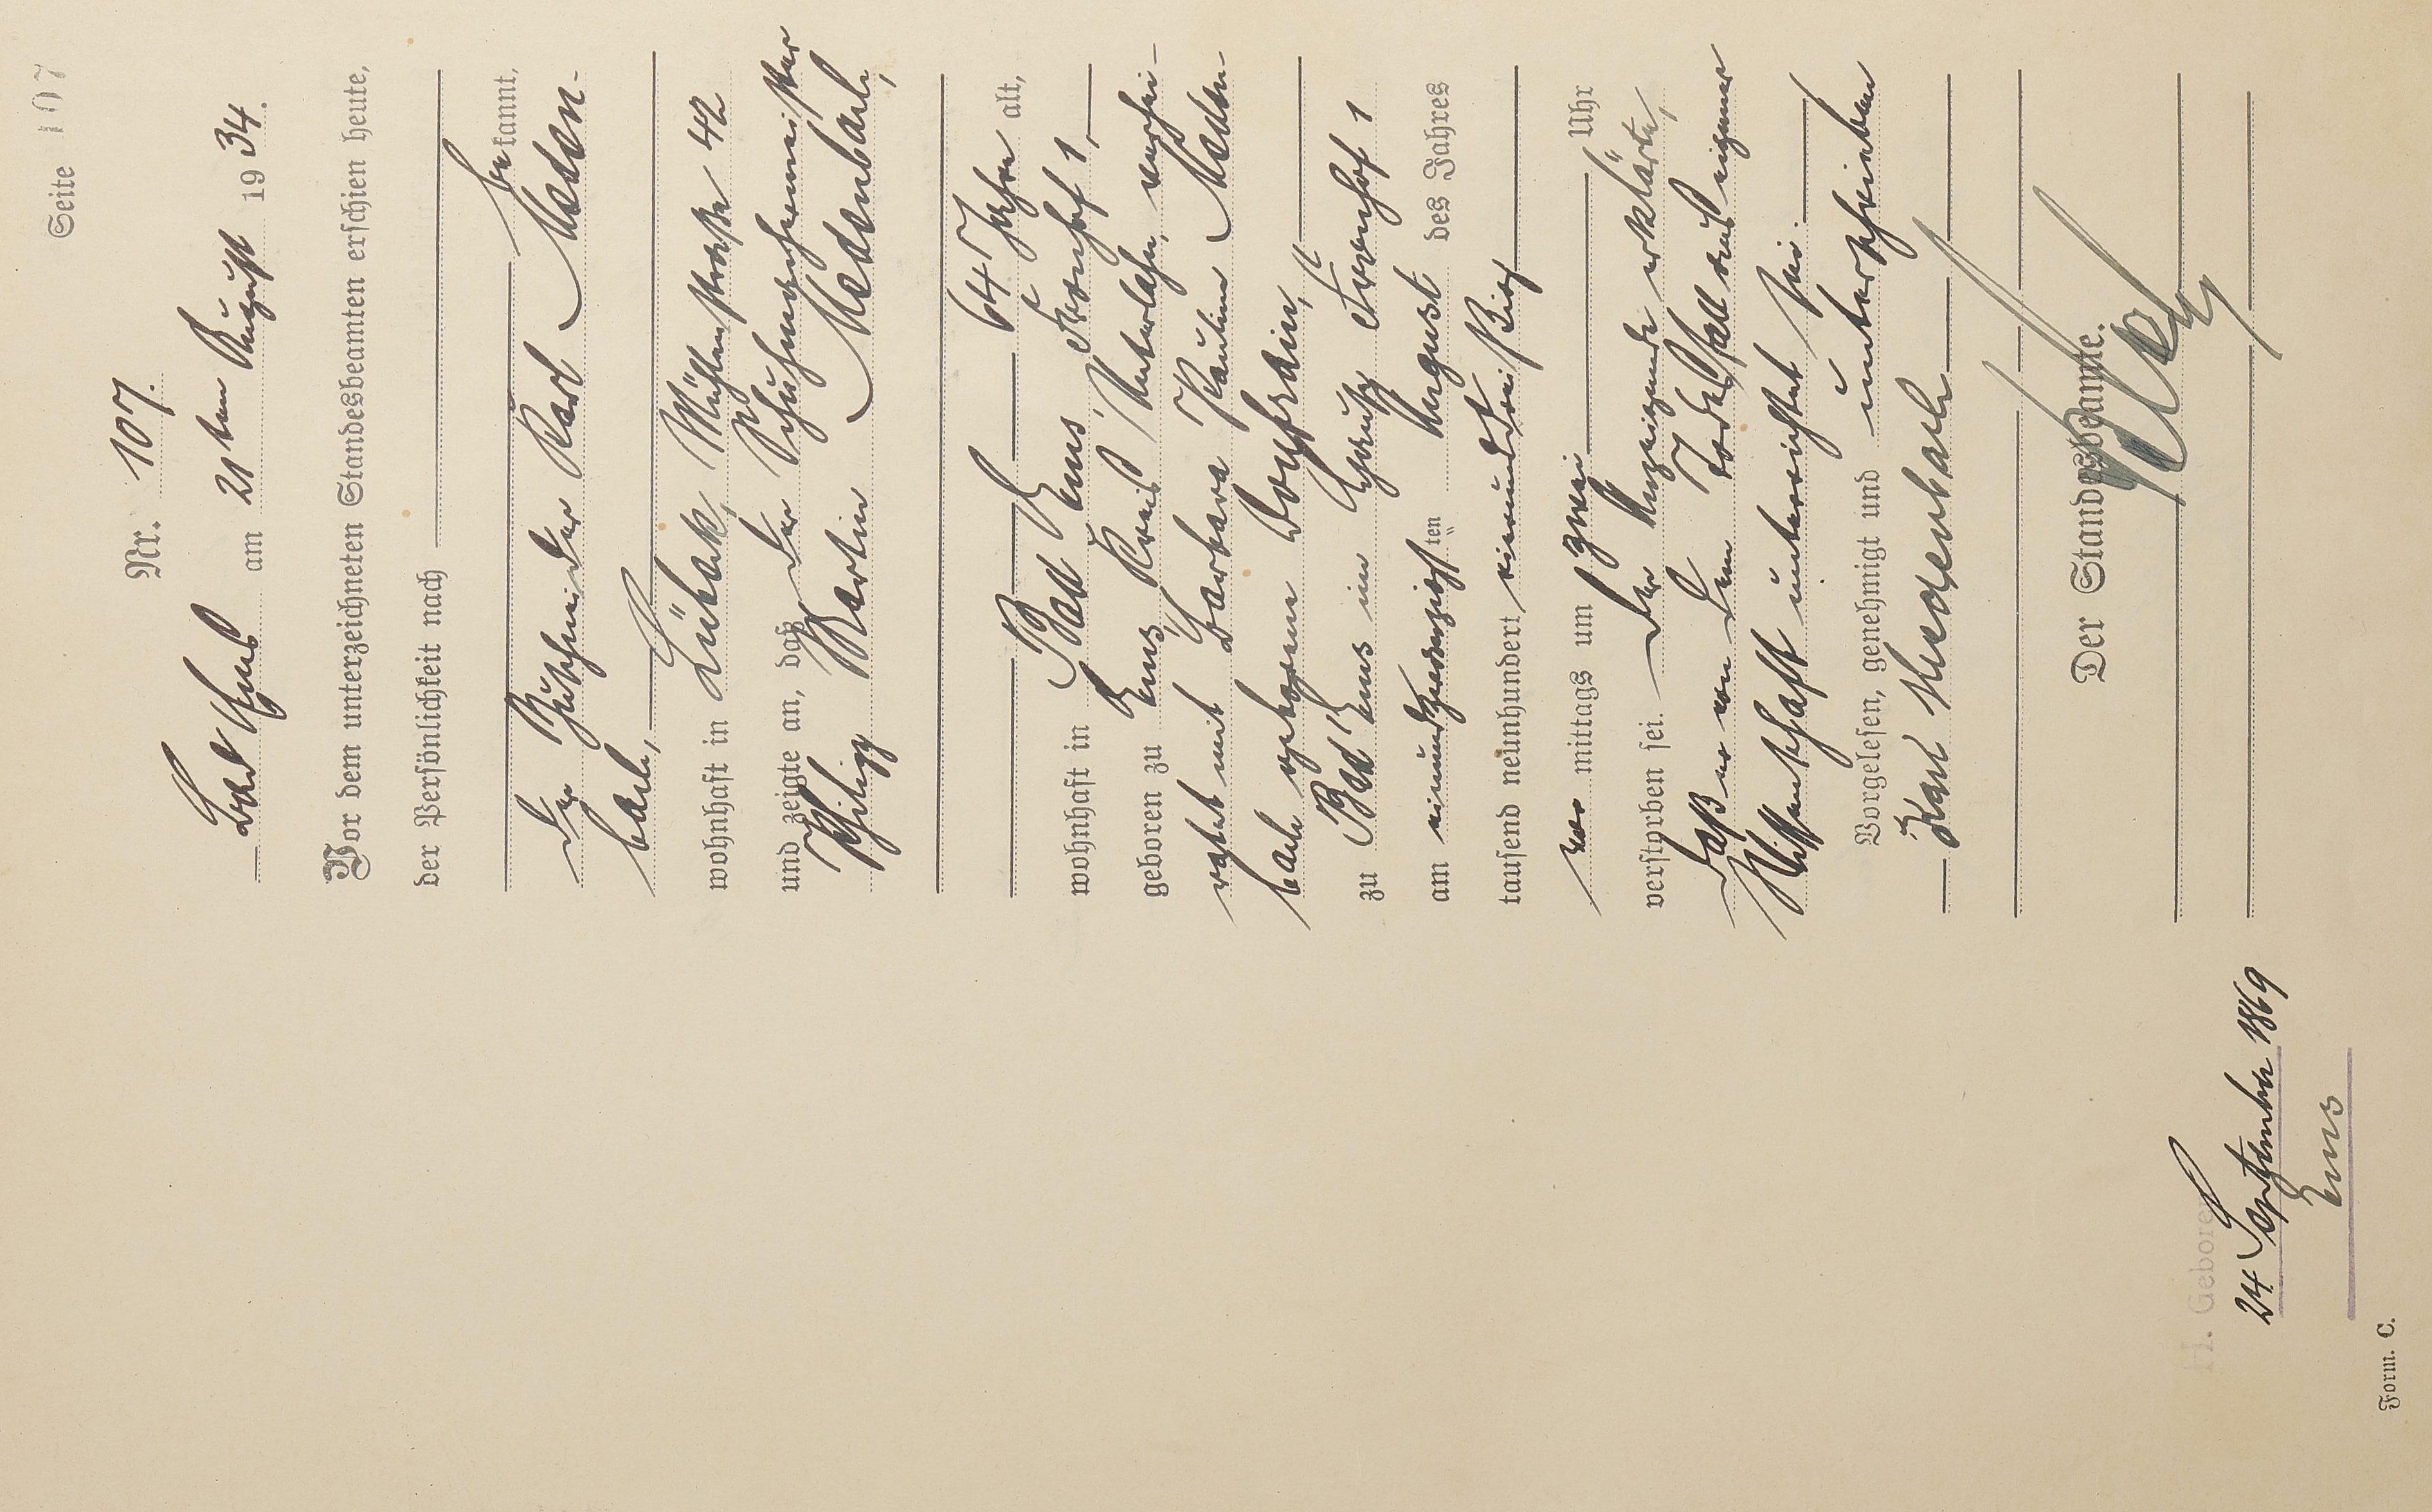 Seite 107
Nr. 107.
Bad Ems am 21ten August 1934.
Vor dem unterzeichneten Standesbeamten erschien heute,
der Persönlichkeit nach
bekannt,
der Karl Meden-
bach,
wohnhaft in Lübeck, Mühlenstraße 42
und zeigte an, daß der Schuhmachermeister
Philipp Martin Medenbach,
64 Jahre alt,
wohnhaft in Bad Ems, Kronhof 1,
geboren zu Ems, Kreis Unterlahn, verhei-
ratet mit Barbara Pauline Meden-
bach geborene
zu Bad Ems in Kronhof 1
am einundzwanzigsten August des Jahres
tausend neunhundert vierunddreißig
vor mittags um zwei Uhr
verstorben sei. Der Anzeigende erklärte,
daß er von dem Todesfall aus eigener
Wissenschaft unterrichtet sei.
Vorgelesen, genehmigt und unterschrieben
Karl Medenbach
Der Standesbeamte.
H. Geboren
24 September 1869
Ems
Form. C.